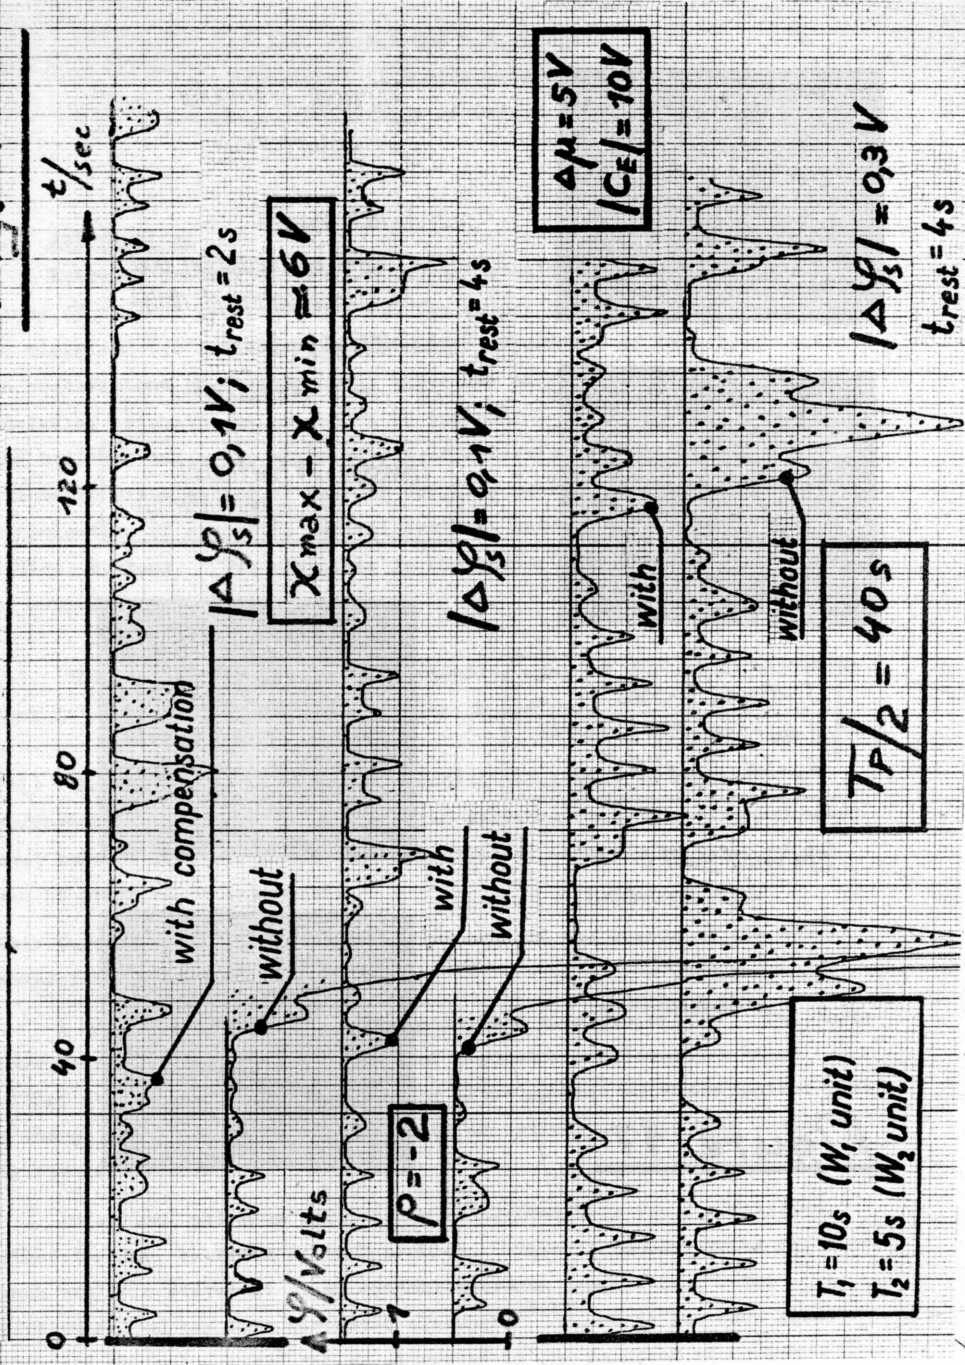 0
40
80
120
t/sec
with compensation
|Δφs| = 0,1V; trest = 2s
without
Xmax - Xmin ≈ 6V
Δφ/Volts
1
0
ρ = -2
with
without
|Δφs| = 0,1V; trest = 4s
Δμ = 5V
|CE| = 10V
with
without
|Δφs| = 0,3V
trest = 4s
TP/2 = 40s
T1 = 10s (W1 unit)
T2 = 5s (W2 unit)